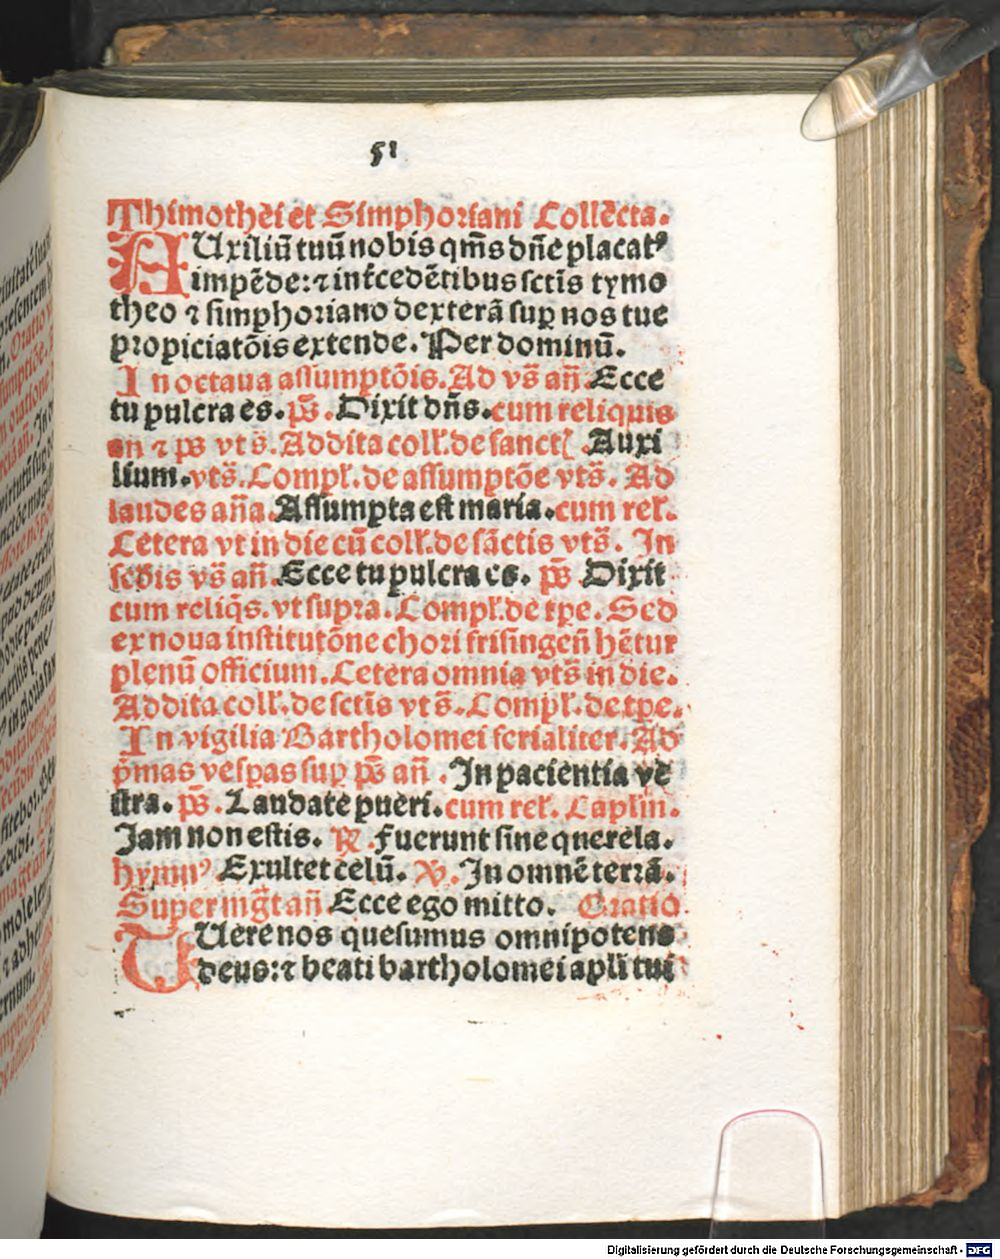 51
Thimothēi et Simphoriani Collēcta.
AUxiliū tuū nobis qm̄s dn̄e placatꝰ
impēde: ⁊ int̄cedētibus sctīs tymo
theo ⁊ simphoriano dexterā suꝑ nos tue
propiciatōis extende. Per dominū.
In octaua assumptōis. Ad vs̄ an̄. Ecce
tu pulcra es. ps̄. Dixit dn̄s. cum reliquis
an ⁊ ps vts̄. Addita coll̄. de sanct Auxi
lium. vts̄. Compl̄. de assumptōe vts̄. Ad
laudes an̄a. Assumpta est maria. cum rel̄.
Cetera vt in die cū coll̄. de sāctis vts̄. In
sc̄dis vs̄ an̄. Ecce tu pulcra es. ps̄ Dixit
cum reliq̄s. vt supra. Compl̄. de tꝑe. Sed
ex noua institutōne chori frisingen̄ hētur
plenū officium. Cetera omnia vts̄ in die.
Addita coll̄. de sctīs vts̄. Compl̄. de tꝑe.
In vigilia Bartholomei ferialiter. Ad
p̄mas vesꝑas suꝑ ps̄ an̄. In pacientia ve
stra. ps̄. Laudate pueri. cum rel̄. Caplm̄.
Jam non estis. ℞. Fuerunt sine querela.
hymnꝰ Exultet celū. ℣. In omnē terrā.
Super mg̅t an̄. Ecce ego mitto. Oratio
TUere nos quesumus omnipotens
deus: ⁊ beati bartholomei apl̄i tui
Digitalisierung gefördert durch die Deutsche Forschungsgemeinschaft - DFG